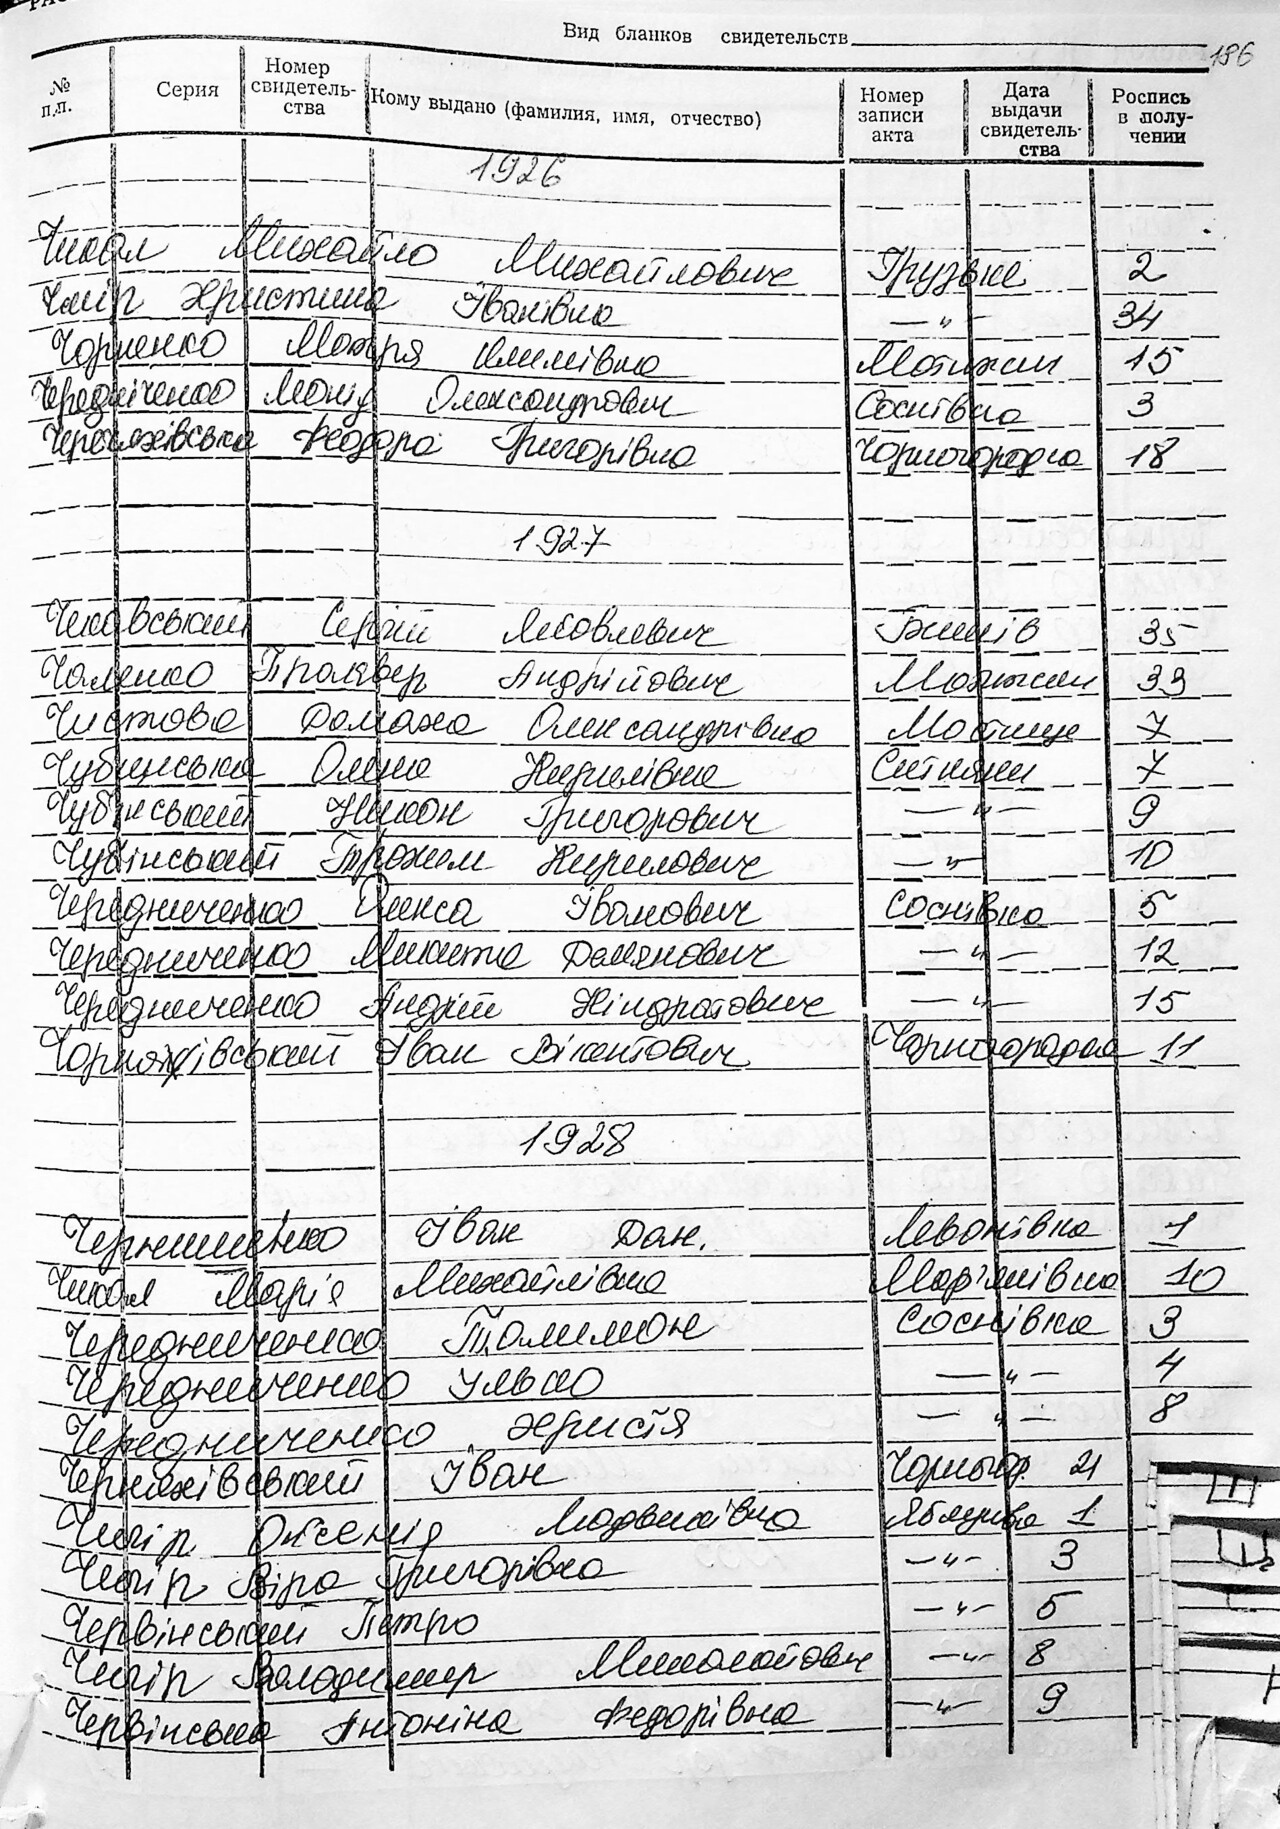 Вид бланков свидетельств
186
№ п.п. Серия Номер свидетель- ства Кому выдано (фамилия, имя, отчество) Номер записи акта Дата выдачи свидетель- ства Роспись в полу- чении
1926
Чикал Михайло Михайлович Грузьке 2
Чмір Христина Іванівна —"— 34
Чорненко Мотря Климівна Мотижин 15
Чередніченко Олександрович Соснівка 3
Федора Григорівна Чорногородка 18
1927
Чеховський Сергій Яковлевич 35
Чаленко Андрійович Мотижин 33
Чистова Домаха Олександрівна Мостище 7
Чубинська Олена Кирилівна Ситняки 7
Чубінський Никон Григорович —"— 9
Чубінський Трохим Кирилович —"— 10
Чередниченко Олекса Іванович Соснівка 5
Чередниченко Микита Демянович —"— 12
Чередниченко Андрій Кіндратович —"— 15
Іван Вікентович Чорногородка 11
1928
Іван Дан. Леонівка 1
Чикал Марія Михайлівна Мар'янівка 10
Чередниченко Толимон Соснівка 3
Чередниченко Улько —"— 4
Чередниченко Христя —"— 8
Черняхівський Іван Чорногор. 21
Чмір Оксенія Людвиківна Яблунівка 1
Чмір Віра Григорівна —"— 3
Червінський Петро —"— 5
Чмір Володимир Миколайович —"— 8
Червінська Антоніна Федорівна —"— 9